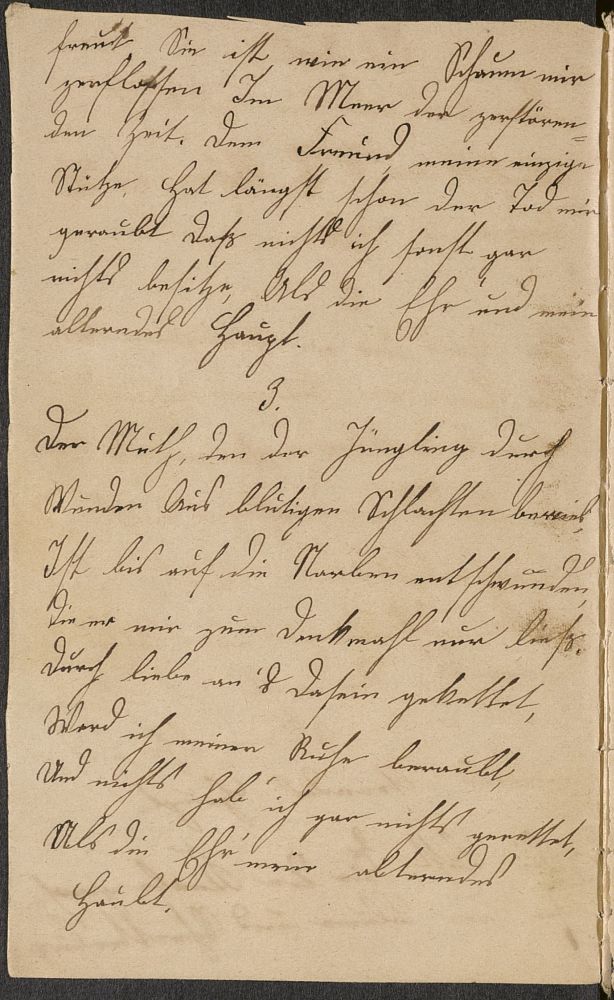 freut Sie ist wie ein Schaum mir
zerflossen Im Meer der zerstören=
den Zeit. Dem Freund, meine einzige
Stütze, Hat längst schon der Tod mir
geraubt Daß nichts ich sonst gar
nichts besitze, Als die Ehr und mein
alterndes Haupt.
3.
Der Muth, den der Jüngling durch
Wunden Aus blutigen Schlachten bewies,
Ist bis auf die Narben entschwunden,
Die er mir zum Denkmahl nur ließ.
Durch liebe an's Dasein gekettet,
Ward ich meiner Ruhe beraubt,
Und nichts hab' ich gar nichts gerettet,
Als die Ehr' mein alterndes
Haubt.